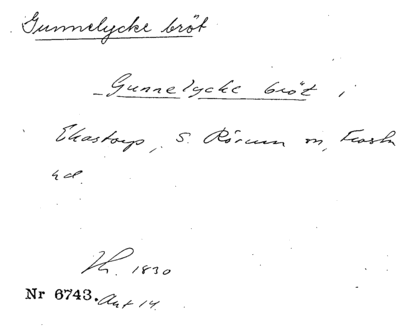 Gunnelycke bröt
Gunnelycke bröt,
Ekastorp, S. Rörum sn, Frosta
hd.
1830
Nr 6743. Ant 14.